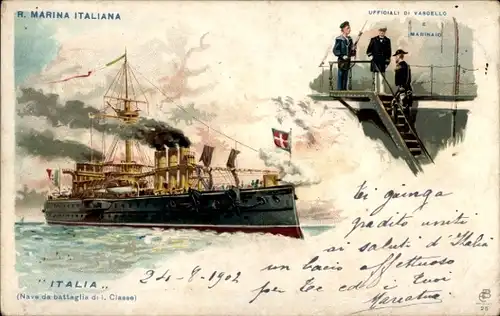 R. MARINA ITALIANA
UFFICIALI DI VASCELLO
E
MARINAIO
Ti giunga
gradito uniti
ai saluti d'Italia
un bacio affettuoso
per te ed i tuoi
"ITALIA"
(Nave da battaglia di I. Classe)
24-8-1902
25